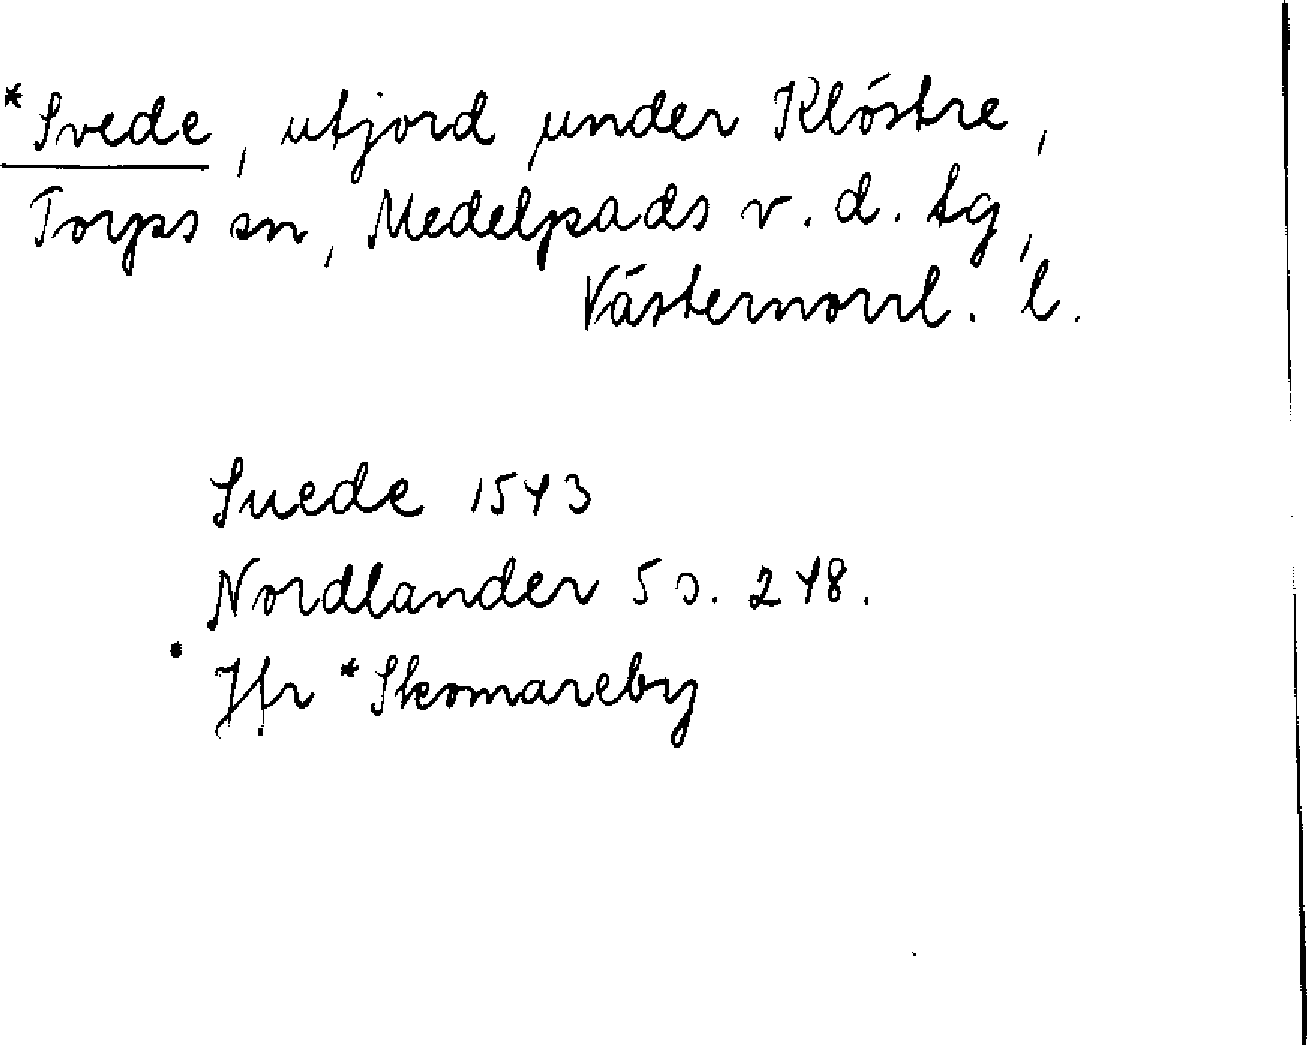 *Svede, utjord under Klöstre,
Torps sn, Medelpads v. d. tg,
Västernorrl. l.
Suede 1543
Nordlander 5 s. 248.
Jfr *Skomareby